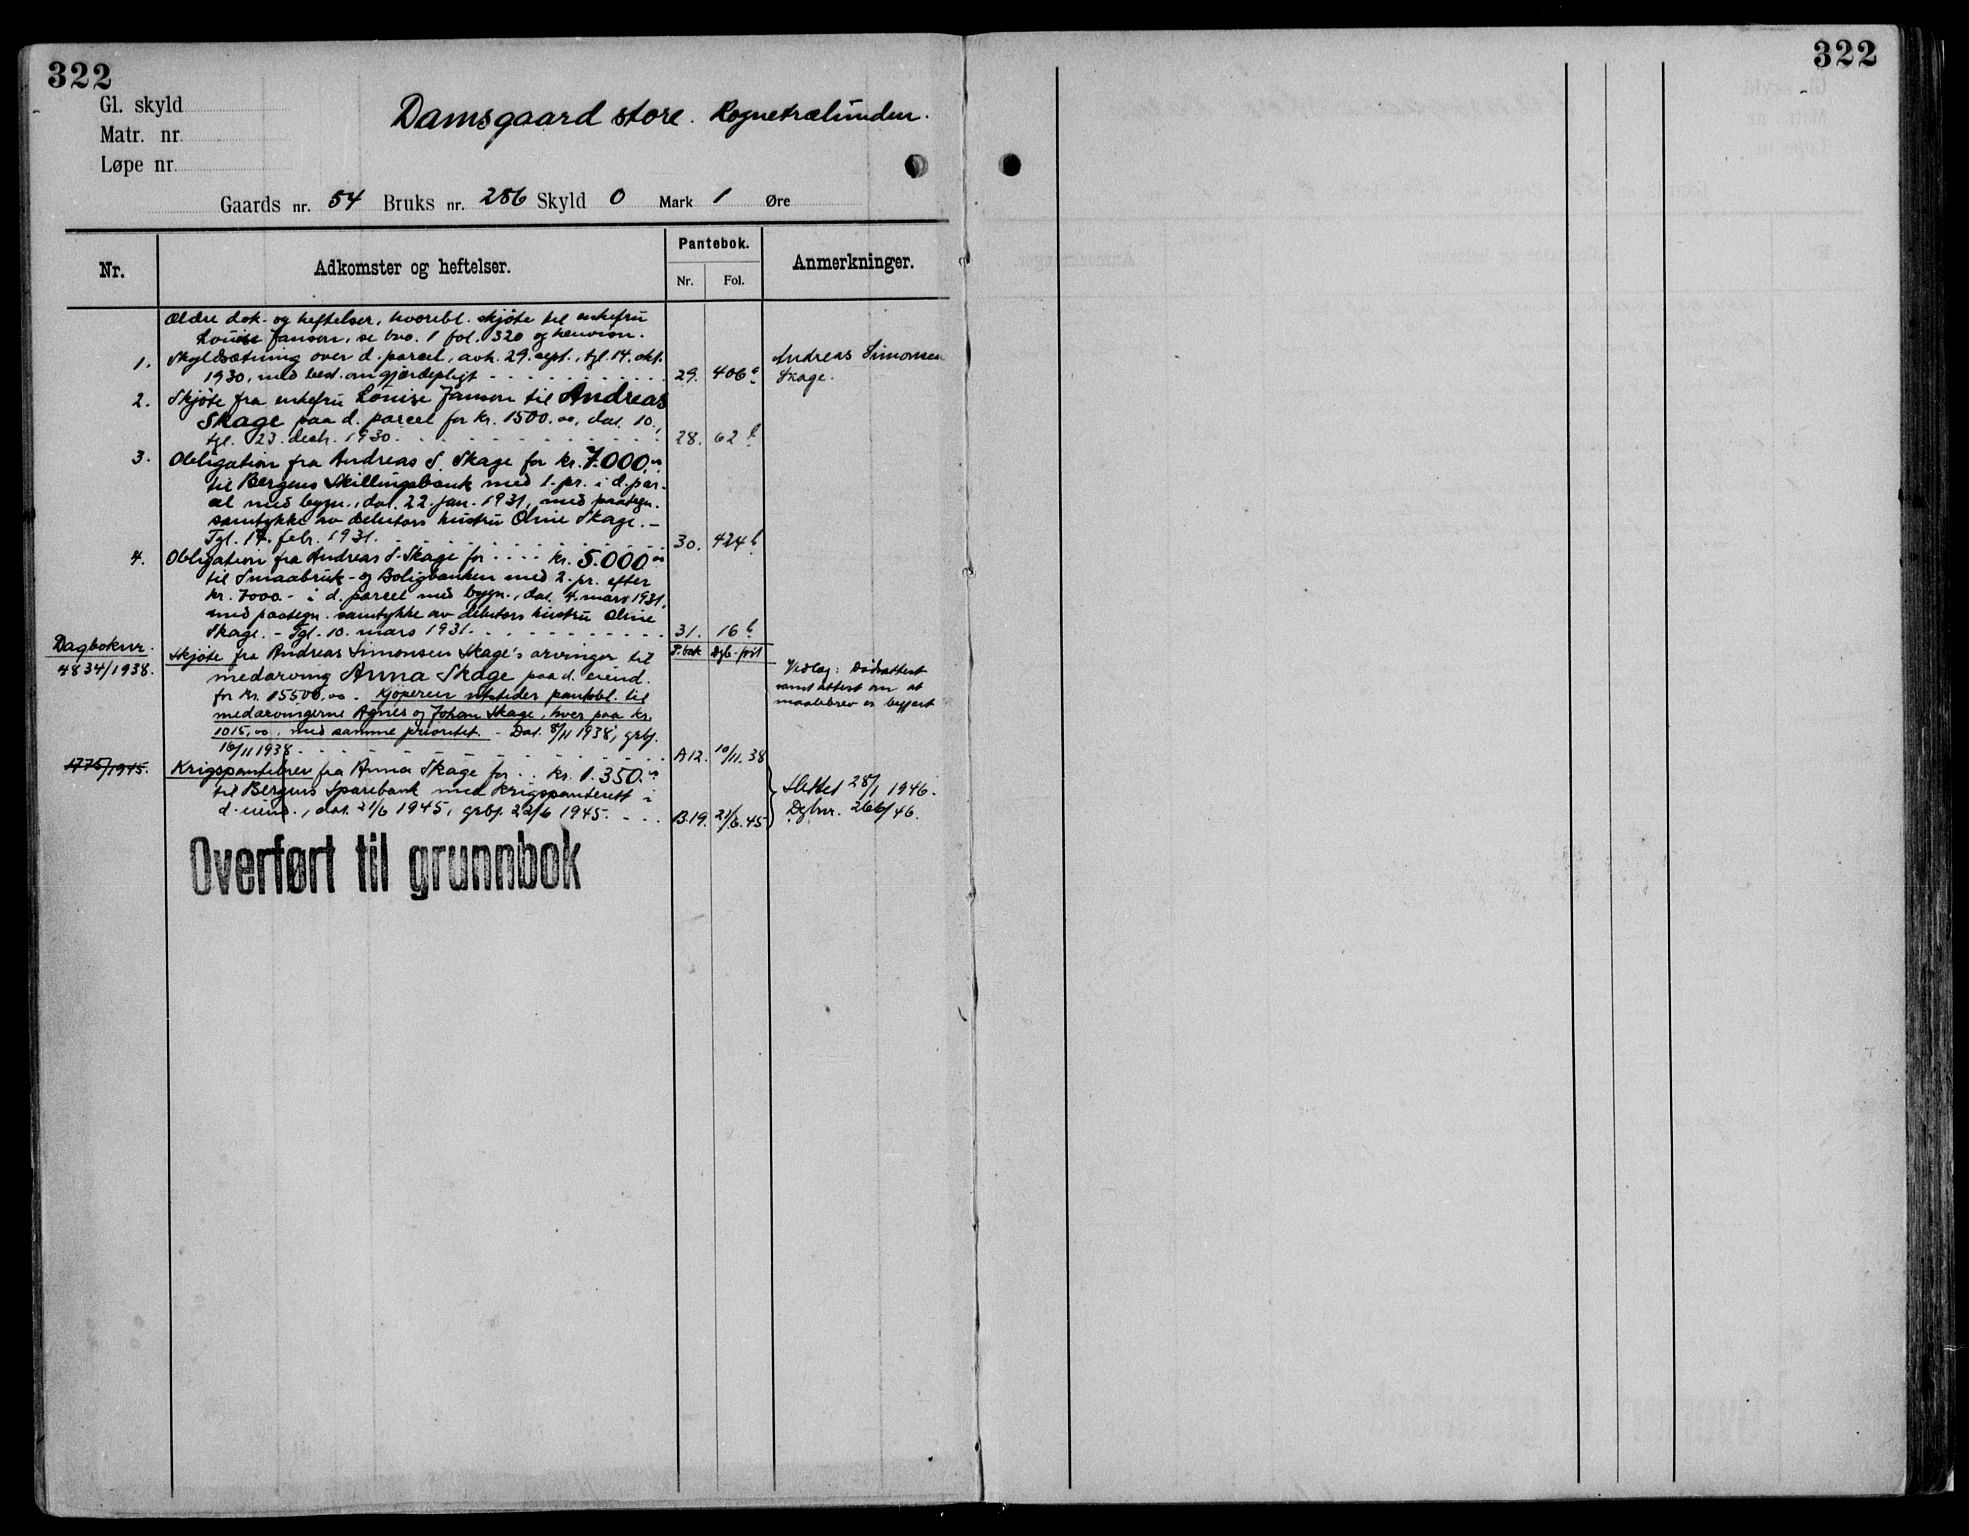 322
322
Gl. skyld
Matr. nr.
Løpe nr.
Damsgaard store. Rognetrælunden.
Gaards nr. 54 Bruks nr. 286 Skyld 0 Mark 1 Øre
Nr.
Adkomster og heftelser.
Pantebok.
Nr. Fol.
Anmerkninger.
Ældre dok. og heftelser, hvoribl. skjøte til enkefru
Louise Janson, se bvo. 1 fol. 320 og henvisn.
1. Skyldsætning over d. parcel, avh. 29. sept., tgl. 14. okt.
1930, med best. om gjærdepligt 29. 406
Andreas Simonsen
Skage.
2. Skjøte fra enkefru Louise Janson til Andreas
Skage paa d. parcel for kr. 1500.00, dat. 10.,
tgl. 23. decbr. 1930. 28. 62
3. Obligation fra Andreas S. Skage for kr. 7.000.00
til Bergens Skillingsbank med 1. pr. i d. par-
cel med bygn., dat. 22. jan. 1931, med paategn.
samtykke av debitors hustru Oline Skage. –
Tgl. 17. febr. 1931. 30. 424 b
4. Obligation fra Andreas S. Skage for .... kr. 5.000.00
til Smaabruk- og Boligbanken med 2. pr. efter
kr. 7000.- i d. parcel med bygn., dat. 4. mars 1931,
med paategn. samtykke av debitors hustru Oline
Skage. – Tgl. 10. mars 1931. 31. 16 b
Dagboknr. P.bok Dgb.-ført
4834/1938. Skjøte fra Andreas Simonsen Skage's arvinger til
medarving Anna Skage paa d. eiend.
for kr. 15500,00. Kjøperen utsteder pantobl. til
medarvingerne Agnes og Johan Skage, hver paa kr.
1015,00, med samme prioritet. – Dat. 8/11 1938, grbf.
10/11 1938 A12. 10/11.38
Vedlag: Dødsattest
samt attest om at
maalebrev er begjært
1775/1945. Krigspantebrev fra Anna Skage for .. kr. 1.350.00
til Bergens Sparebank med krigspanterett i
d. eiend., dat. 21/6 1945, grbf. 22/6 1945. B.19. 21/6.45
Slettet 28/1 1946.
Dgbnr. 266/46.
Overført til grunnbok